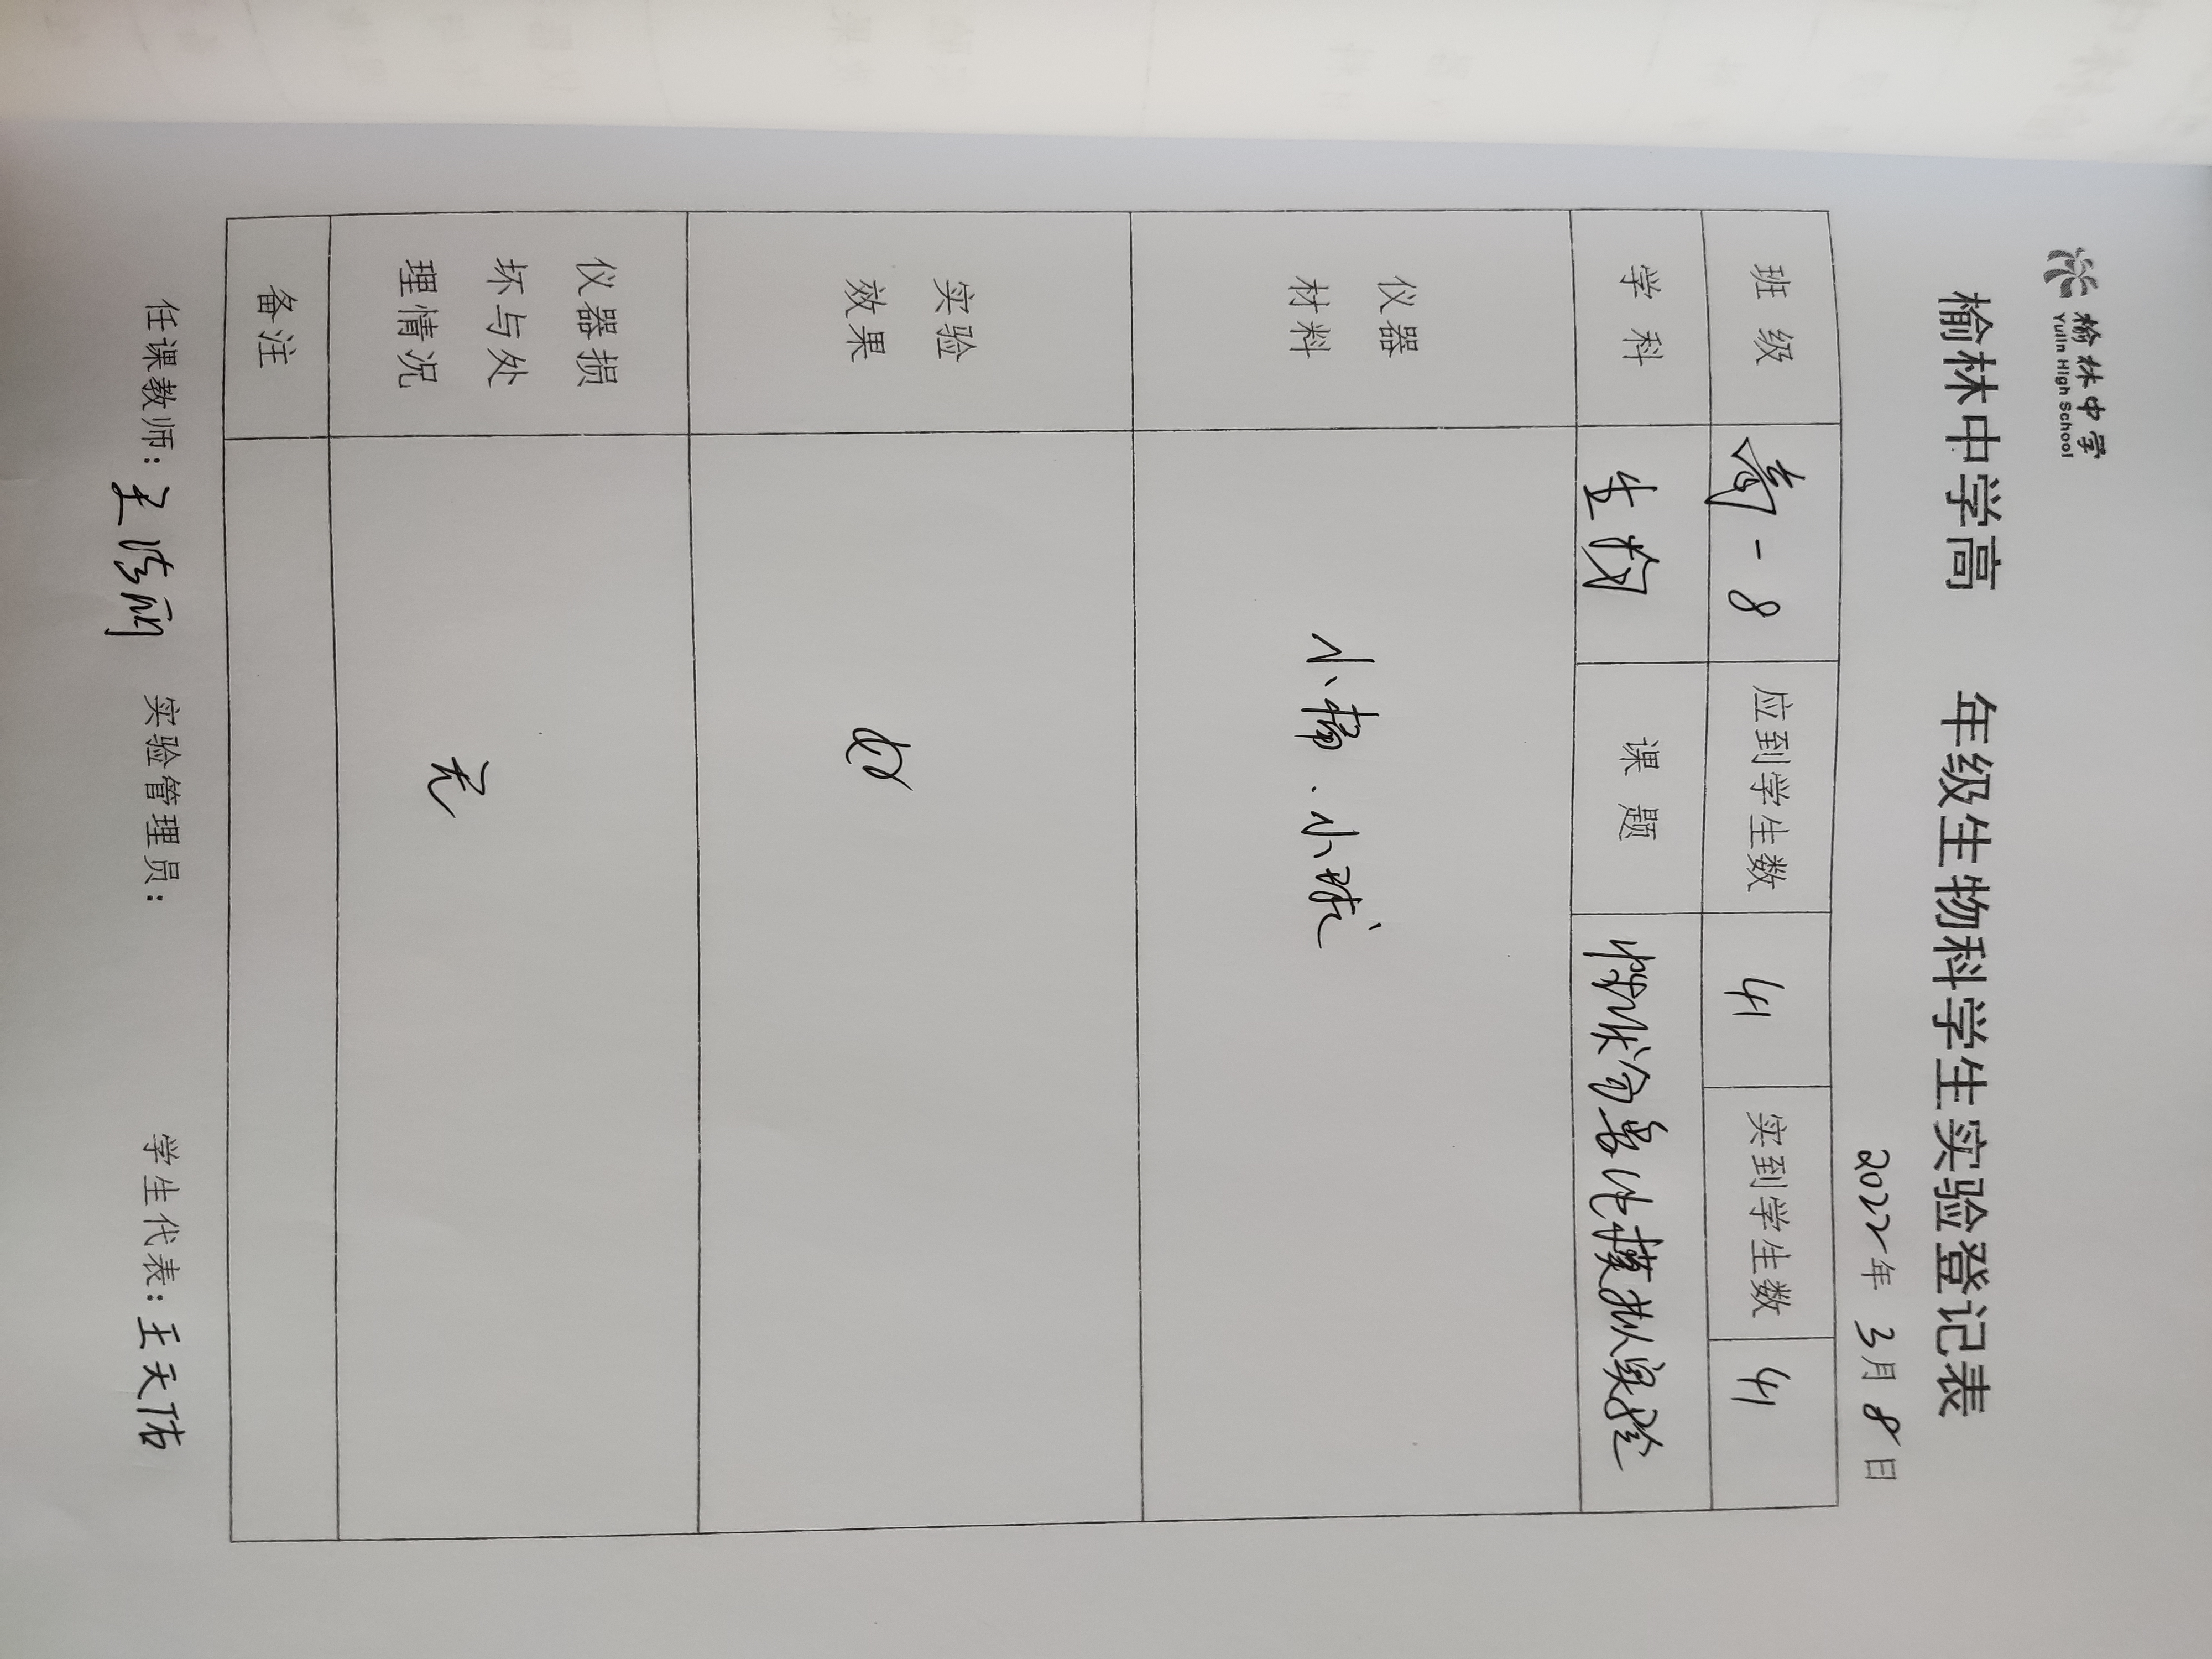 榆林中学
Yulin High School
榆林中学高 年级生物科学生实验登记表
2022年 3月 8日
班级 高一8 应到学生数 41 实到学生数 41
学科 生物 课题 性状分离比模拟实验
仪器
材料
小桶、小球
实验
效果
好
仪器损
坏与处
理情况
无
备注
任课教师: 王 实验管理员: 学生代表: 王天佑